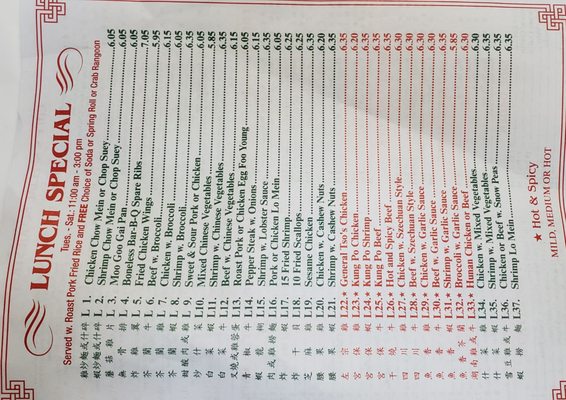 LUNCH SPECIAL
Tues. - Sat.: 11:00 am - 3:00 pm
Served w. Roast Pork Fried Rice and FREE Choice of Soda or Spring Roll or Crab Rangoon
雞炒麵或什碎 L 1. Chicken Chow Mein or Chop Suey 6.05
蝦炒麵或什碎 L 2. Shrimp Chow Mein or Chop Suey 6.05
蘑菇雞片 L 3. Moo Goo Gai Pan 6.05
無骨排 L 4. Boneless Bar-B-Q Spare Ribs 7.05
炸雞翼 L 5. Fried Chicken Wings 5.95
芥蘭牛 L 6. Beef w. Broccoli 6.15
芥蘭雞 L 7. Chicken w. Broccoli 6.05
芥蘭蝦 L 8. Shrimp w. Broccoli 6.35
甜酸肉或雞 L 9. Sweet & Sour Pork or Chicken 6.35
炒什菜 L10. Mixed Chinese Vegetables 5.85
白菜蝦 L11. Shrimp w. Chinese Vegetables 6.35
白菜牛 L12. Beef w. Chinese Vegetables 6.15
叉燒或雞蓉蛋 L13. Roast Pork or Chicken Egg Foo Young 6.05
青椒牛 L14. Pepper Steak w. Onions 6.15
蝦龍糊 L15. Shrimp w. Lobster Sauce 6.35
肉或雞撈麵 L16. Pork or Chicken Lo Mein 6.05
炸蝦 L17. 15 Fried Shrimp 6.25
炸干貝 L18. 10 Fried Scallops 6.25
芝麻雞 L19. Sesame Chicken 6.35
腰果雞 L20. Chicken w. Cashew Nuts 6.20
腰果蝦 L21. Shrimp w. Cashew Nuts 6.35
左宗雞 L22.★ General Tso's Chicken 6.35
宮保雞 L23.★ Kung Po Chicken 6.30
宮保蝦 L24.★ Kung Po Shrimp 6.35
宮保 L25.★ Kung Po 6.35
干燒牛 L26.★ Hot and Spicy Beef 6.35
四川雞 L27.★ Chicken w. Szechuan Style 6.30
四川牛 L28.★ Beef w. Szechuan Style 6.30
魚香雞 L29.★ Chicken w. Garlic Sauce 6.30
魚香牛 L30.★ Beef w. Garlic Sauce 6.30
魚香蝦 L31.★ Shrimp w. Garlic Sauce 6.35
魚香芥蘭 L32.★ Broccoli w. Garlic Sauce 5.85
湖南雞或牛 L33.★ Hunan Chicken or Beef 6.30
什菜雞 L34. Chicken w. Mixed Vegetables 6.30
什菜蝦 L35. Shrimp w. Mixed Vegetables 6.35
雪豆雞或牛 L36. Chicken or Beef w. Snow Peas 6.30
蝦撈麵 L37. Shrimp Lo Mein 6.35
★ Hot & Spicy
MILD, MEDIUM OR HOT